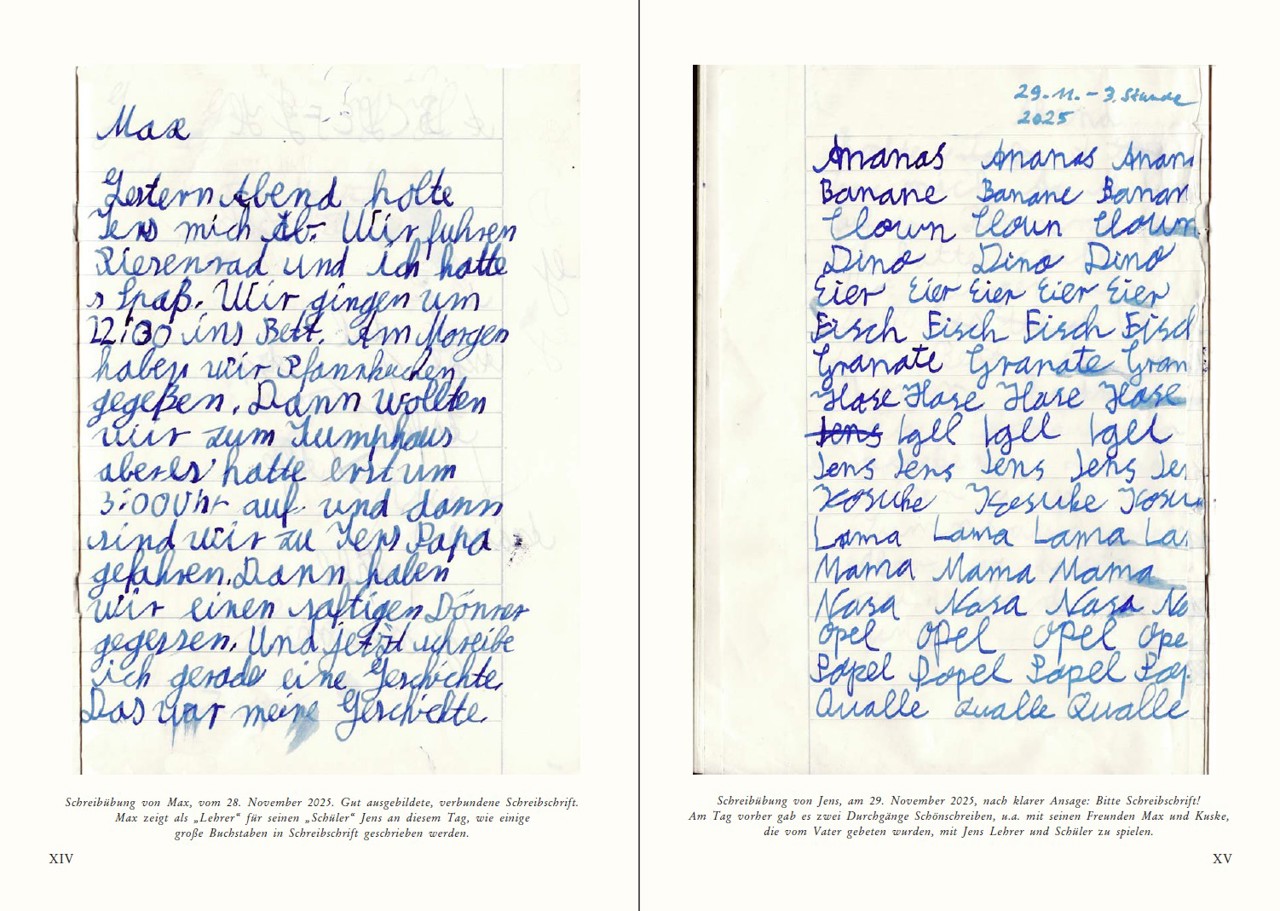 Max
Gestern Abend holte
Jens mich ab. Wir fuhren
Riesenrad und ich hatte
Spaß. Wir gingen um
12:30 ins Bett. Am Morgen
haben wir Pfannkuchen
gegeßen. Dann wollten
wir zum Jumphaus
aber es hatte erst um
3:00 Uhr auf und dann
sind wir zu Jens Papa
gefahren. Dann haben
wir einen saftigen Dönner
gegessen. Und jetzt schreibe
ich gerade eine Geschichte.
Das war meine Geschichte.
Schreibübung von Max, vom 28. November 2025. Gut ausgebildete, verbundene Schreibschrift.
Max zeigt als „Lehrer“ für seinen „Schüler“ Jens an diesem Tag, wie einige
große Buchstaben in Schreibschrift geschrieben werden.
XIV
29.11. – 3. Stunde
2025
Ananas Ananas Anan
Banane Banane Banan
Clown Clown Clown
Dino Dino Dino
Eier Eier Eier Eier Eier
Fisch Fisch Fisch Fisch
Granate Granate Gran
Hase Hase Hase Hase
Jens Igel Igel Igel
Jens Jens Jens Jens Jen
Kosuke Kosuke Kosu
Lama Lama Lama La
Mama Mama Mama
Nasa Nasa Nasa Na
Opel Opel Opel Ope
Papel Papel Papel Pap
Qualle Qualle Qualle
Schreibübung von Jens, am 29. November 2025, nach klarer Ansage: Bitte Schreibschrift!
Am Tag vorher gab es zwei Durchgänge Schönschreiben, u.a. mit seinen Freunden Max und Kuske,
die vom Vater gebeten wurden, mit Jens Lehrer und Schüler zu spielen.
XV